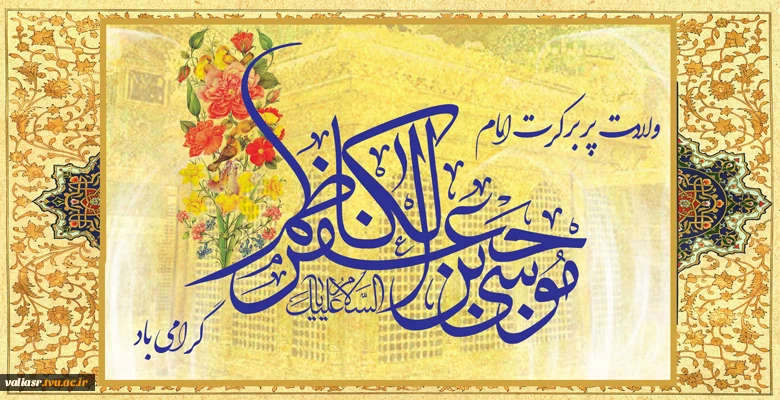 ولادت پر برکت امام
موسی بن جعفر الکاظم
السلام علیک
گرامی باد
valiasr.tvu.ac.ir